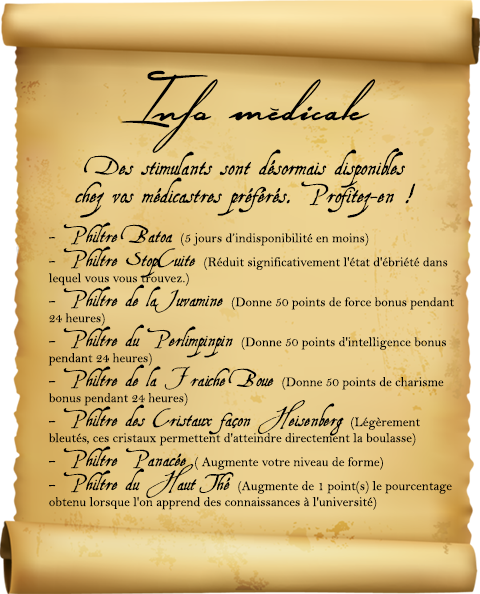 Info médicale
Des stimulants sont désormais disponibles
chez vos médicastres préférés. Profitez-en !
- Philtre Batoa (5 jours d'indisponibilité en moins)
- Philtre StopCuite (Réduit significativement l'état d'ébriété dans
lequel vous vous trouvez.)
- Philtre de la Juvamine (Donne 50 points de force bonus pendant
24 heures)
- Philtre du Perlimpinpin (Donne 50 points d'intelligence bonus
pendant 24 heures)
- Philtre de la Fraiche Boue (Donne 50 points de charisme
bonus pendant 24 heures)
- Philtre des Cristaux façon Heisenberg (Légèrement
bleutés, ces cristaux permettent d'atteindre directement la boulasse)
- Philtre Panacée ( Augmente votre niveau de forme)
- Philtre du Haut Thé (Augmente de 1 point(s) le pourcentage
obtenu lorsque l'on apprend des connaissances à l'université)